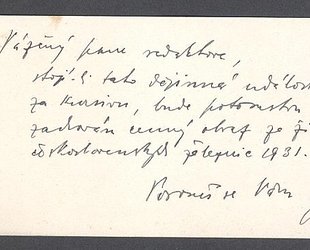 Vážený pane redaktore,
stojí-li tato dějinná událost
za kursivu, bude potomstvu
zachován cenný obraz ze ži
československých železnic 1931.
Poroučí se Vám